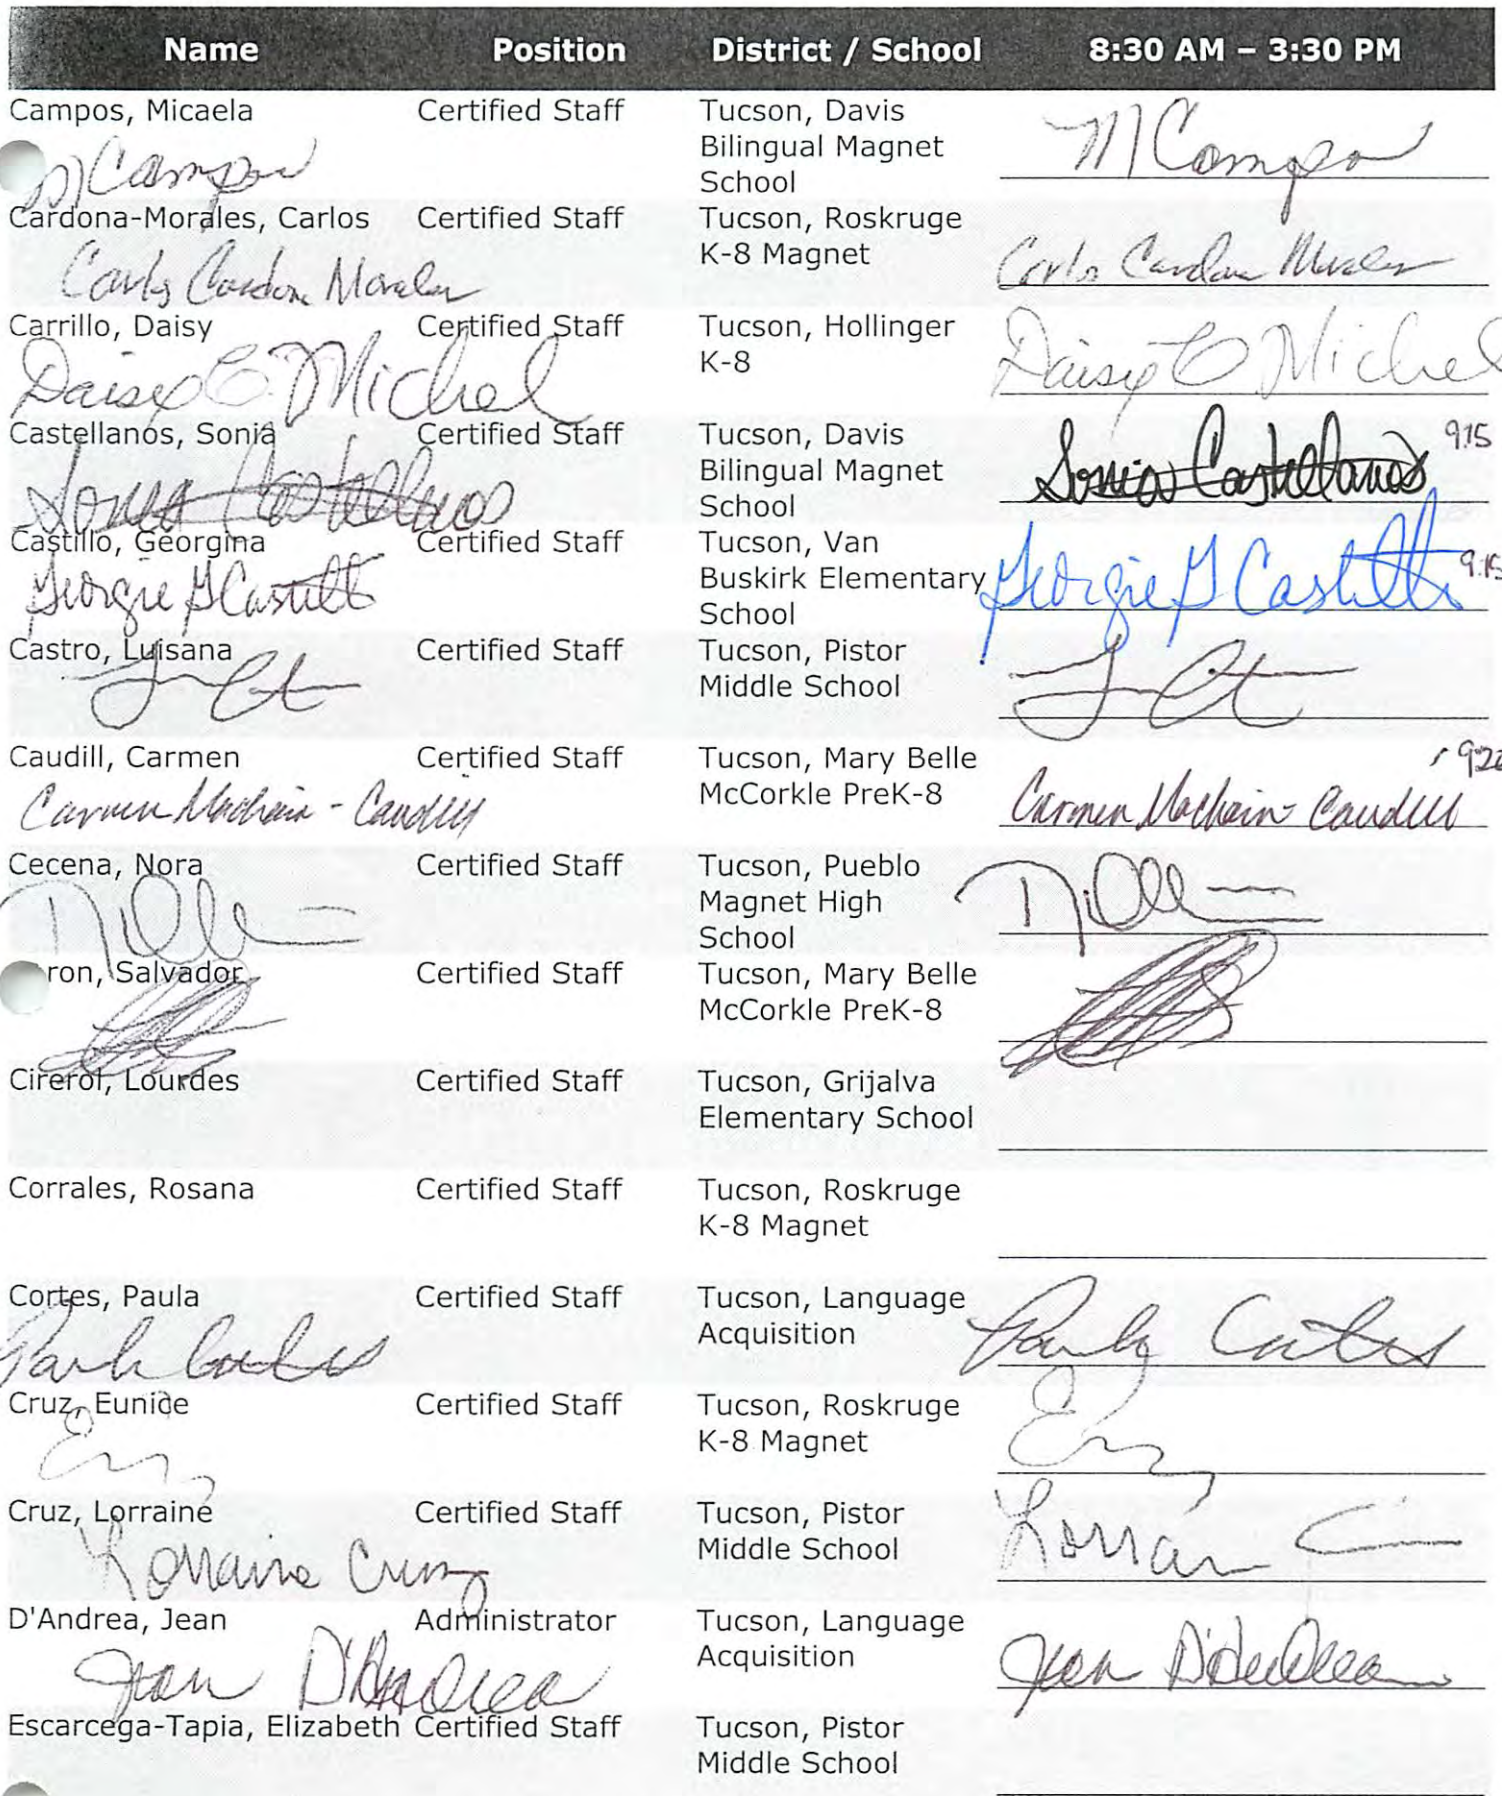 Name Position District / School 8:30 AM – 3:30 PM
Campos, Micaela Certified Staff Tucson, Davis
Bilingual Magnet
School
M Campos M Campos
Cardona-Morales, Carlos Certified Staff Tucson, Roskruge
K-8 Magnet
Carlos Cardona Morales Carlos Cardona Morales
Carrillo, Daisy Certified Staff Tucson, Hollinger
K-8
Daisy E Michel Daisy E Michel
Castellanos, Sonia Certified Staff Tucson, Davis
Bilingual Magnet
School
Sonia Castellanos Sonia Castellanos 9:15
Castillo, Georgina Certified Staff Tucson, Van
Buskirk Elementary
School
Georgie G Castillo Georgie G Castillo 9:15
Castro, Luisana Certified Staff Tucson, Pistor
Middle School
Caudill, Carmen Certified Staff Tucson, Mary Belle
McCorkle PreK-8
Carmen Machain - Caudill Carmen Machain - Caudill
Cecena, Nora Certified Staff Tucson, Pueblo
Magnet High
School
ron, Salvador Certified Staff Tucson, Mary Belle
McCorkle PreK-8
Cirerol, Lourdes Certified Staff Tucson, Grijalva
Elementary School
Corrales, Rosana Certified Staff Tucson, Roskruge
K-8 Magnet
Cortes, Paula Certified Staff Tucson, Language
Acquisition
Paula Cortes Paula Cortes
Cruz, Eunice Certified Staff Tucson, Roskruge
K-8 Magnet
Cruz, Lorraine Certified Staff Tucson, Pistor
Middle School
Lorraine Cruz
D'Andrea, Jean Administrator Tucson, Language
Acquisition
Jean D'Andrea Jean D'Andrea
Escarcega-Tapia, Elizabeth Certified Staff Tucson, Pistor
Middle School